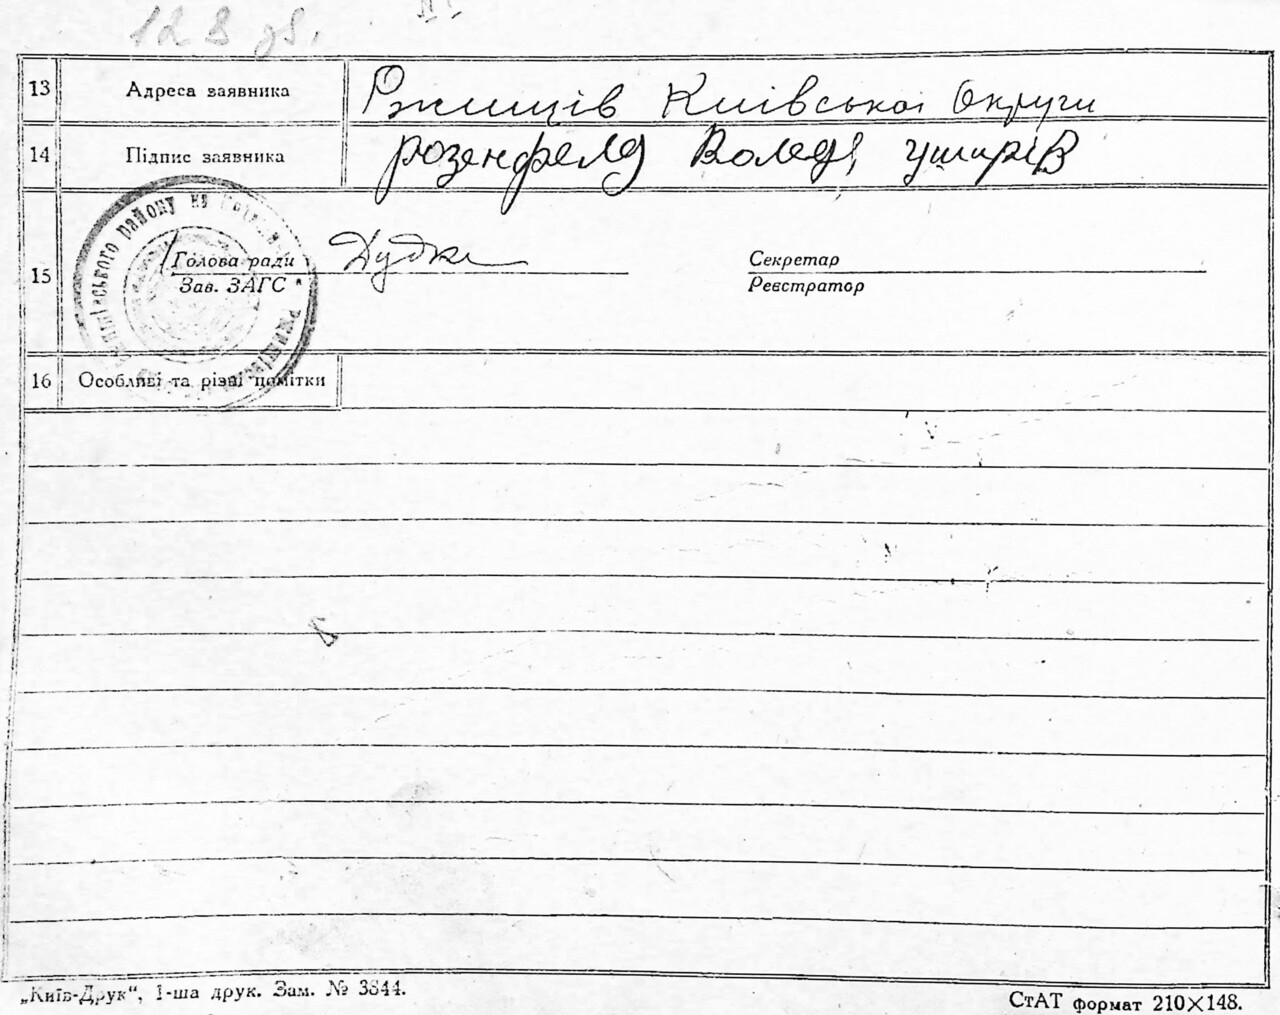 128
13 Адреса заявника Ржищів Київської Округи
14 Підпис заявника розенфелд
15 Голова ради Дудка Секретар
Зав. ЗАГС Реєстратор
району на
16 Особливі та різні помітки
„Київ-Друк“, 1-ша друк. Зам. № 3844.
СтАТ формат 210×148.